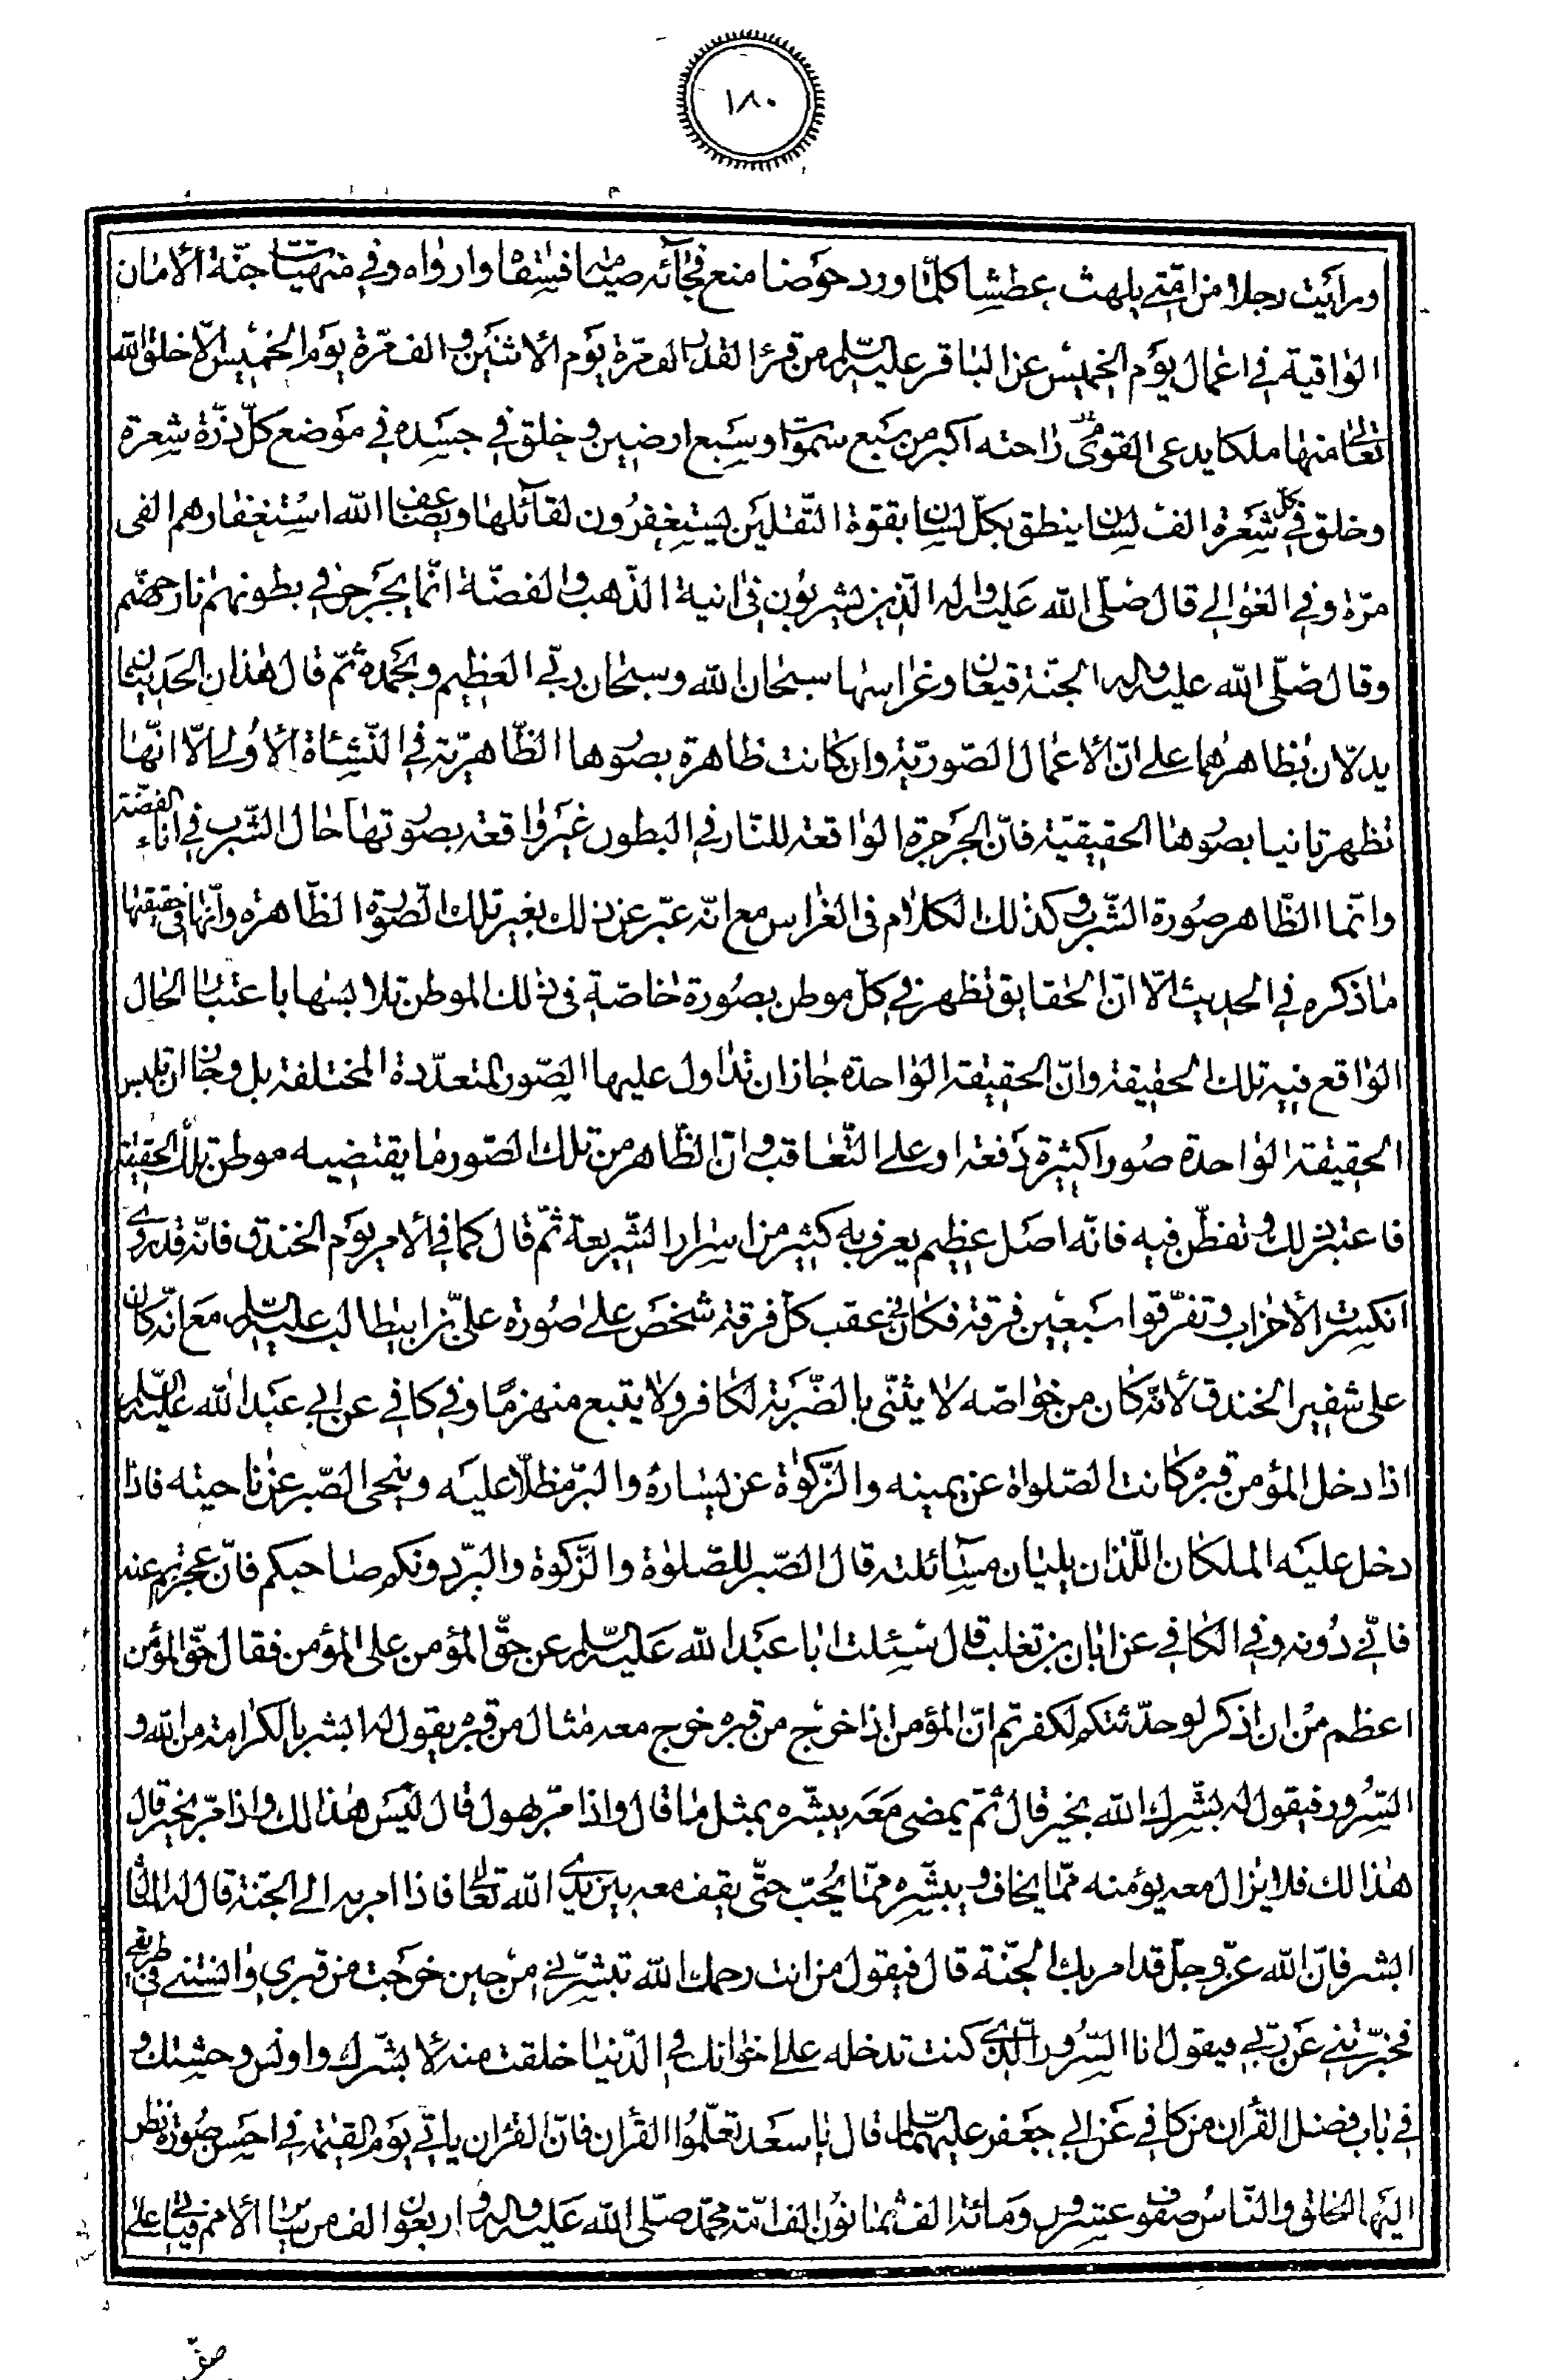 ١٨٠
ورايت رجلا من امّتي يلهث عطشا كلّما ورد حوضا منع فجائه صيامه فسقاه وارواه وفي منهيات جنّة الامان
الواقية في اعمال يوم الخميس عن الباقر عليه السّلم من قرء القدر الف مرّة يوم الاثنين والف مرّة يوم الخميس الّا خلق الله
تعالى منها ملكا يدعى القوىّ راحته اكبر من سبع سموات وسبع ارضين وخلق في جسده في موضع كلّ ذرّة شعرة
وخلق في كلّ شعرة الف لسان ينطق بكلّ لسان بقوّة الثّقلين يستغفرون لقائلها ويضاعف الله استغفارهم الفى
مرّة وفي الغوالي قال صلّى الله عليه واله الّذين يشربون في انية الذّهب والفضّة انّما يجرجر في بطونهم نار جهنّم
وقال صلّى الله عليه واله الجنّة قيعان وغراسها سبحان الله وسبحان ربّي العظيم وبحمده ثمّ قال هذان الحديثان
يدلّان بظاهرهما على انّ الاعمال الصّوريّة وان كانت ظاهرة بصورها الظّاهريّة في النّشأة الاولى الّا انّها
تظهر ثانيا بصورها الحقيقيّة فانّ الجرجرة الواقعة للنّار في البطون غير واقعة بصورتها حال الشّرب في اناء الفضّة
وانّما الظّاهر صورة الشّرب وكذلك الكلام في الغراس مع انّه عبّر عن ذلك بغير تلك الصّورة الظّاهرة وانّها في حقيقتها
ما ذكره في الحديث الّا انّ الحقايق تظهر في كلّ موطن بصورة خاصّة في ذلك الموطن تلابسها باعتبار الحال
الواقع فيه تلك الحقيقة وانّ الحقيقة الواحدة جاز ان تداول عليها الصّور المتعدّدة المختلفة بل وجاز ان تلبس
الحقيقة الواحدة صورا كثيرة دفعة او على التّعاقب وانّ الظّاهر من تلك الصّور ما يقتضيه موطن تلك الحقيقة
فاعتبر ذلك وتفطّن فيه فانّه اصل عظيم يعرف به كثير من اسرار الشّريعة ثمّ قال كما في الامر يوم الخندق فانّه قد روى
انكسرت الاحزاب وتفرّقوا سبعين فرقة فكان في عقب كلّ فرقة شخص على صورة علىّ بن ابيطالب عليه السّلم مع انّه كان
على شفير الخندق لانّه كان من خواصّه لا يثنّى بالضّربة لكافر ولا يتبع منهزمًا وفي كافي عن ابي عبد الله عليه السّلم
اذا دخل المؤمن قبره كانت الصّلواة عن يمينه والزّكوة عن يساره والبرّ مظلّا عليه وينحى الصّبر عن ناحيته فاذا
دخل عليه الملكان اللّذان يليان مسائلته قال الصّبر للصّلوة والزّكوة والبرّ دونكم صاحبكم فان عجزتم عنه
فانّي دونه وفي الكافي عن ابان بن تغلب قال سئلت ابا عبد الله عليه السّلم عن حقّ المؤمن على المؤمن فقال حقّ المؤمن
اعظم من ان اذكر لو حدّثتكم لكفرتم انّ المؤمن اذا خرج من قبره خرج معه مثال من قبره يقول له ابشر بالكرامة من الله و
السّرور فيقول له بشّرك الله بخير قال ثمّ يمضى معه يبشّره بمثل ما قال واذا مرّ بهول قال ليس هذا لك واذا مرّ بخير قال
هذا لك فلا يزال معه يؤمنه ممّا يخاف ويبشّره ممّا يحبّ حتّى يقف معه بين يدى الله تعالى فاذا امر به الى الجنّة قال له المثال
ابشر فانّ الله عزّ وجلّ قد امر بك الى الجنّة قال فيقول من انت رحمك الله تبشّرني من حين خرجت من قبري وانستني في طريقي
فخبّرتني عن ربّي فيقول انا السّرور الّذى كنت تدخله على اخوانك في الدّنيا خلقت منه لابشّرك واونس وحشتك و
في باب فضل القران من كافي عن ابي جعفر عليهما السلام قال يا سعد تعلّموا القران فانّ القران ياتي يوم القيمة في احسن صورة نظر
اليها الخلق والنّاس صفوف عشرون ومائة الف ثمانون الف امّة محمّد صلّى الله عليه واله واربعون الف من ساير الامم فياتي على
صفّ